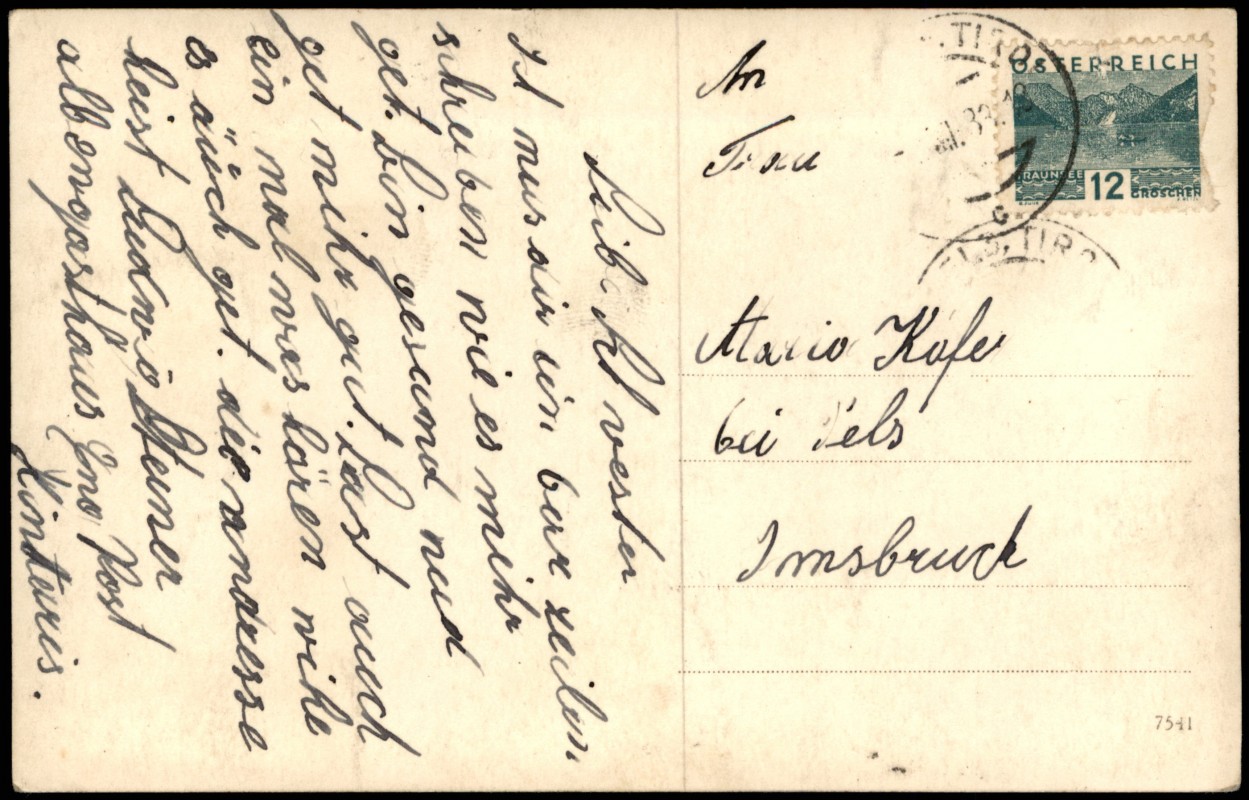 Libe Schvester
Ist mus dir ein bar zeilen
schreiben wie es mihr
get. bin gesund und
get mihr gut. Last auch
ein mal was hären wihe
es äuch get. die andresse
heist Ludwig Steiner
albengasthaus Eno Post
Hinturis.
An
Frau
Maria Kofer
bei Pels
Innsbruck
ÖSTERREICH
TRAUNSEE 12 GROSCHEN
S. TIROL
S. TIRO
7541